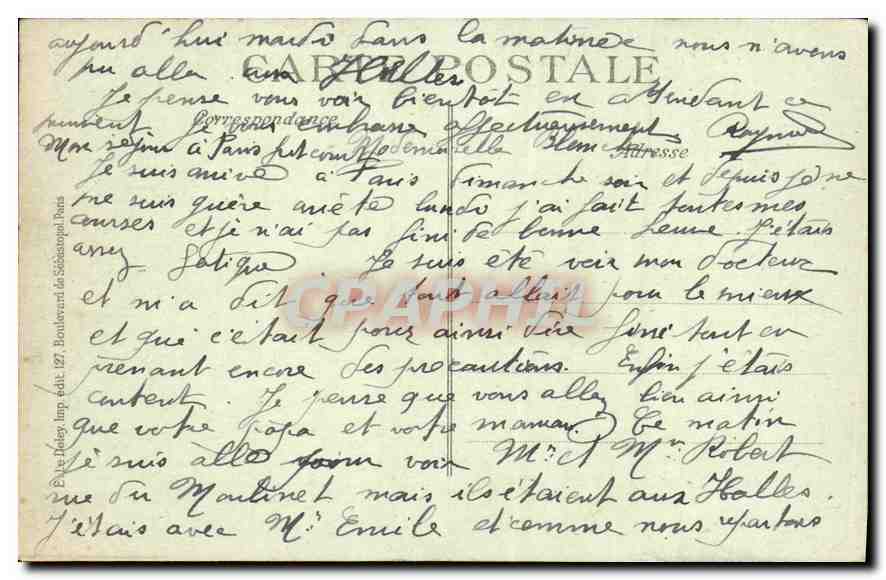 aujourd'hui mardi dans la matinée nous n'avons
CARTE POSTALE
pu aller aux Halles
Je pense vous voir bientôt en attendant ce
Correspondance
moment je vous embrasse affectueusement. Raymond
Mon séjour à Paris fut court Mademoiselle Blanche
Adresse
Je suis arrivé à Paris dimanche soir et depuis je ne
me suis guère arrêté lundi j'ai fait toutes mes
courses et je n'ai pas fini de bonne heure. J'étais
assez fatigué Je suis été voir mon docteur
et m'a dit que tout allait pour le mieux
CPAPHIL
et que c'était pour ainsi dire fini tout en
prenant encore des precautions. Enfin j'étais
content. Je pense que vous allez bien ainsi
que votre papa et votre maman. Ce matin
je suis allé voir Mr et Mme Robert
rue du Moulinet mais ils étaient aux Halles.
J'étais avec Mr Emile et comme nous repartons
E. Le Deley, Imp. édit. 127, Boulevard de Sébastopol, Paris